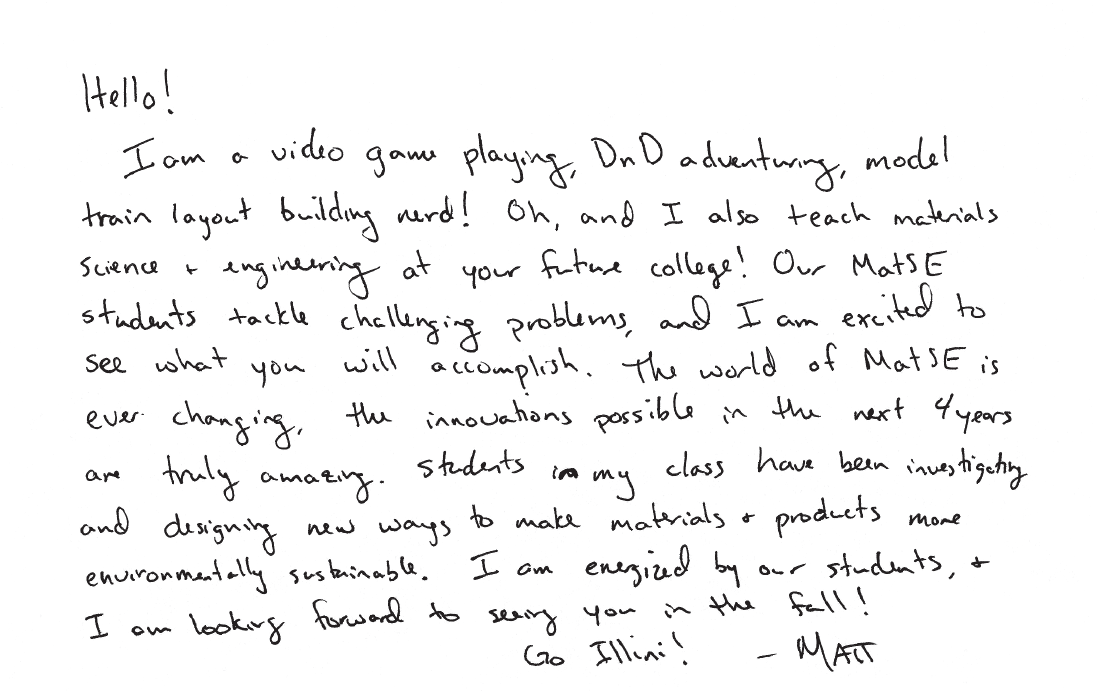 Hello!
I am a video game playing, DnD adventuring, model
train layout building nerd! Oh, and I also teach materials
science + engineering at your future college! Our MatSE
students tackle challenging problems, and I am excited to
see what you will accomplish. The world of MatSE is
ever changing, the innovations possible in the next 4 years
are truly amazing. Students in my class have been investigating
and designing new ways to make materials + products more
environmentally sustainable. I am energized by our students, +
I am looking forward to seeing you in the fall!
Go Illini! - MATT